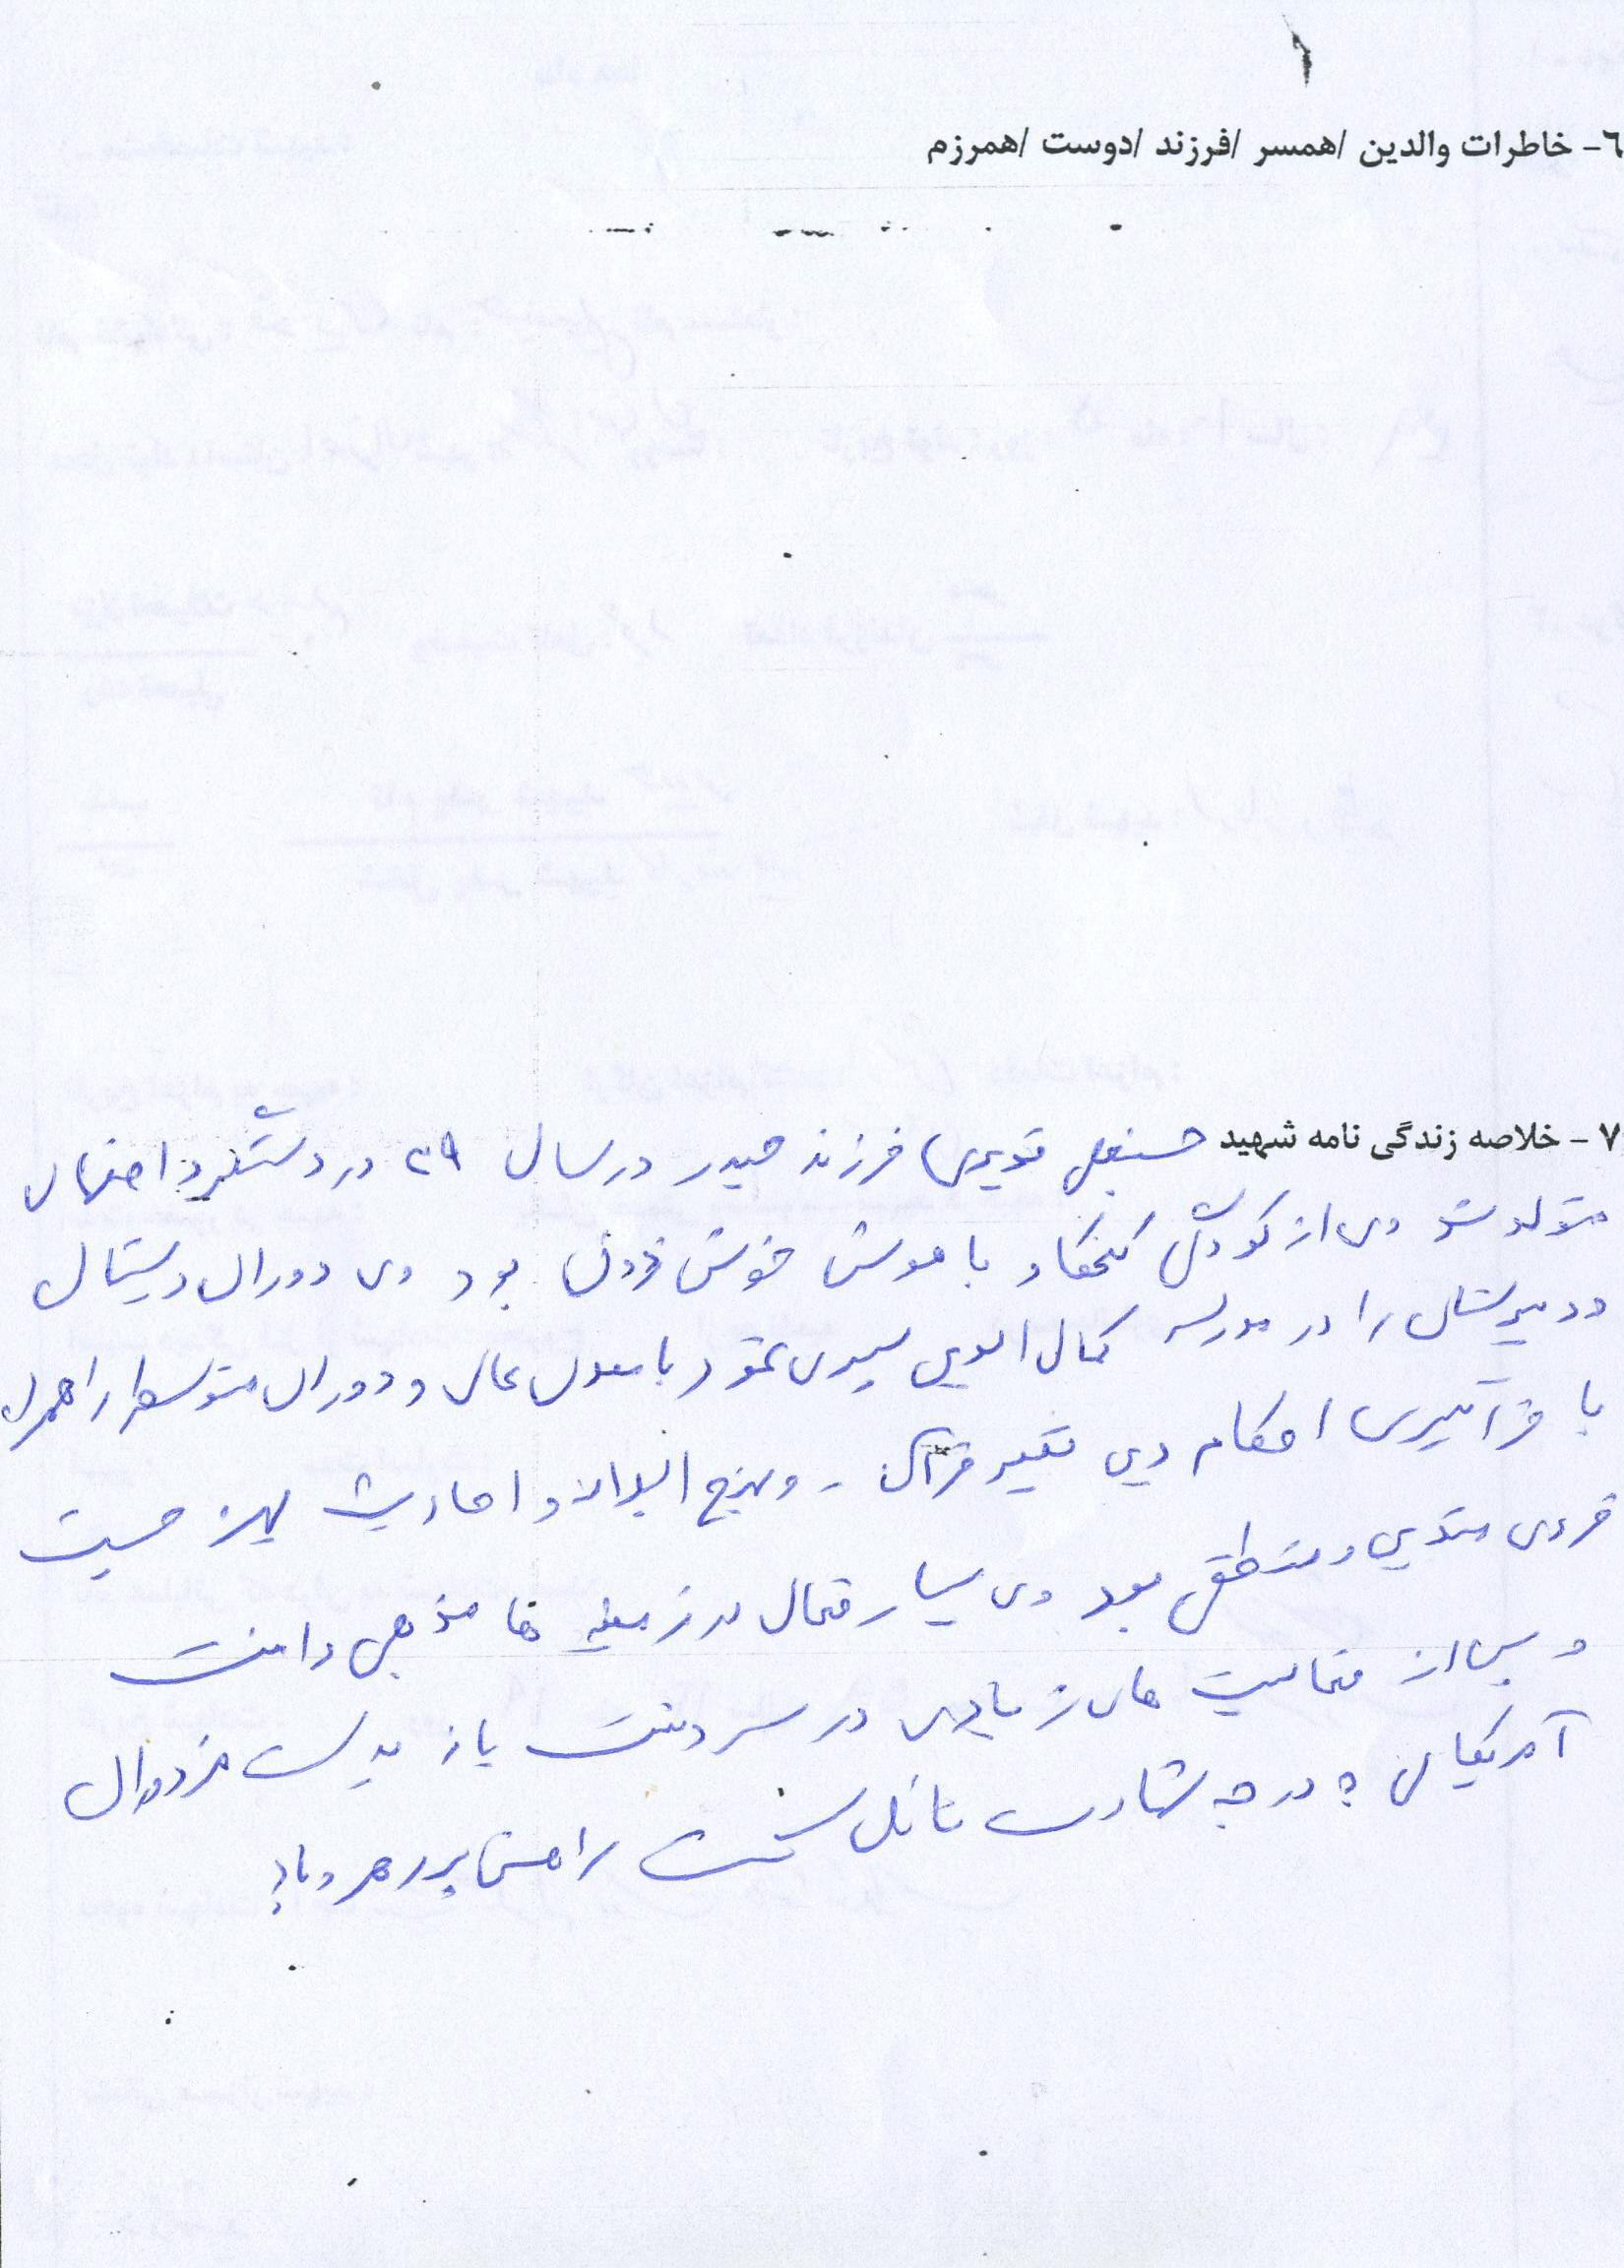 ٦- خاطرات والدین /همسر /فرزند /دوست /همرزم
٧ - خلاصه زندگی نامه شهید حسینعلی فرزند حیدر در سال ۲۹ در دستگرد اصفهان
متولد شد وی از کودکی کنجکاو باهوش خوش ذوق بود وی دوران دبستان
و دبیرستان را در مدرسه کمال الدین سپری نمود با معدل عالی و دوران متوسطه را همراه
با فراگیری احکام دین تفسیر قرآن - و نهج البلاغه و احادیث
فردی متدین و منطقی بود وی بسیار فعال در زمینه ها مذهبی داشت
و پس از فعالیت های زیادی در سردشت بدست مزدوران
آمریکایی به درجه شهادت نائل گشت راهش پررهرو باد